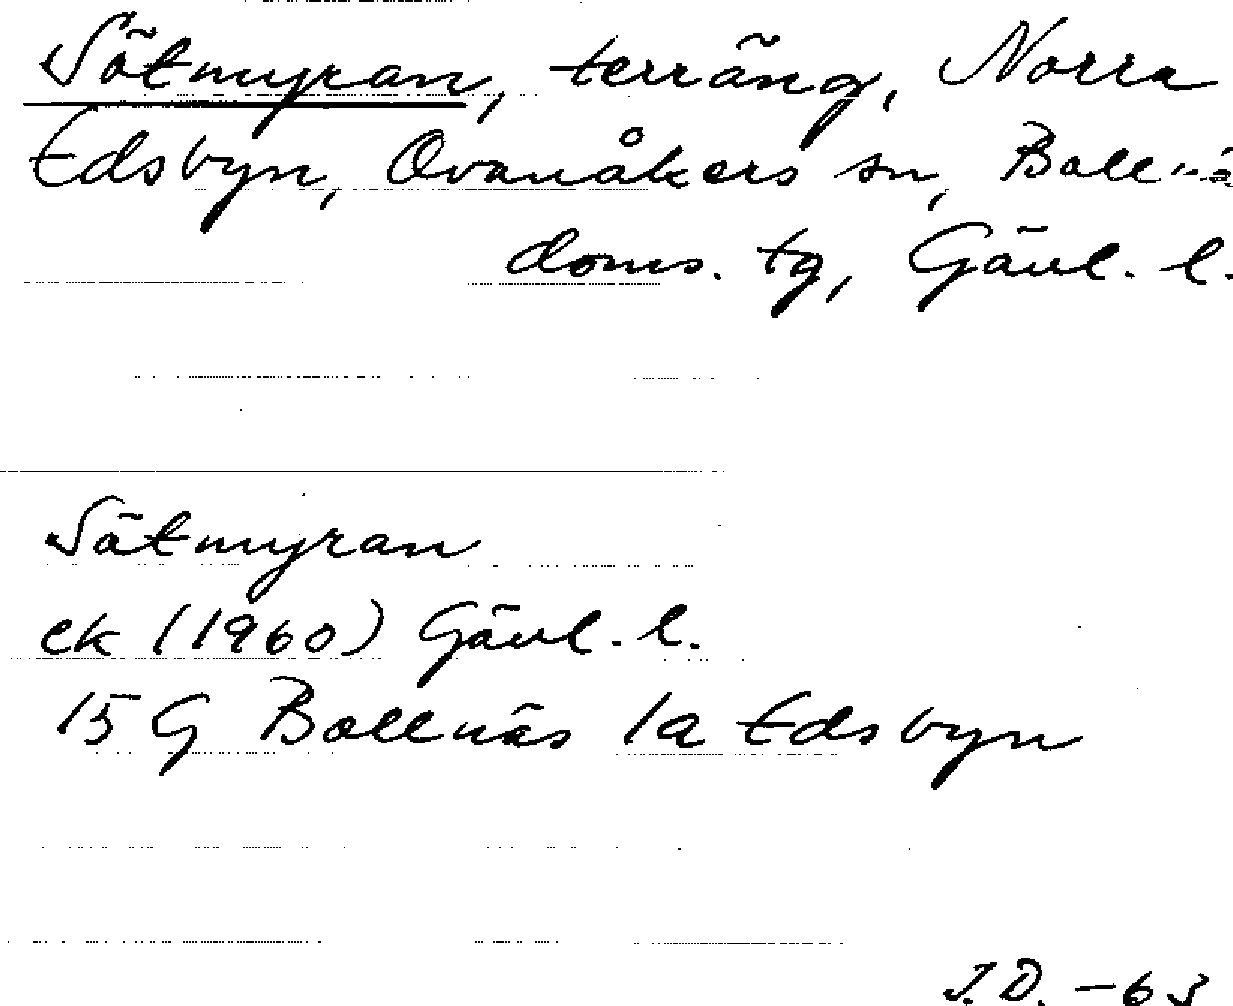 Sätmyran, terräng, Norra
Edsbyn, Ovanåkers sn, Bollnä
doms. tg, Gävl. l.
Sätmyran
ek (1960) Gävl. l.
15 G Bollnäs 1a Edsbyn
J.D. -63